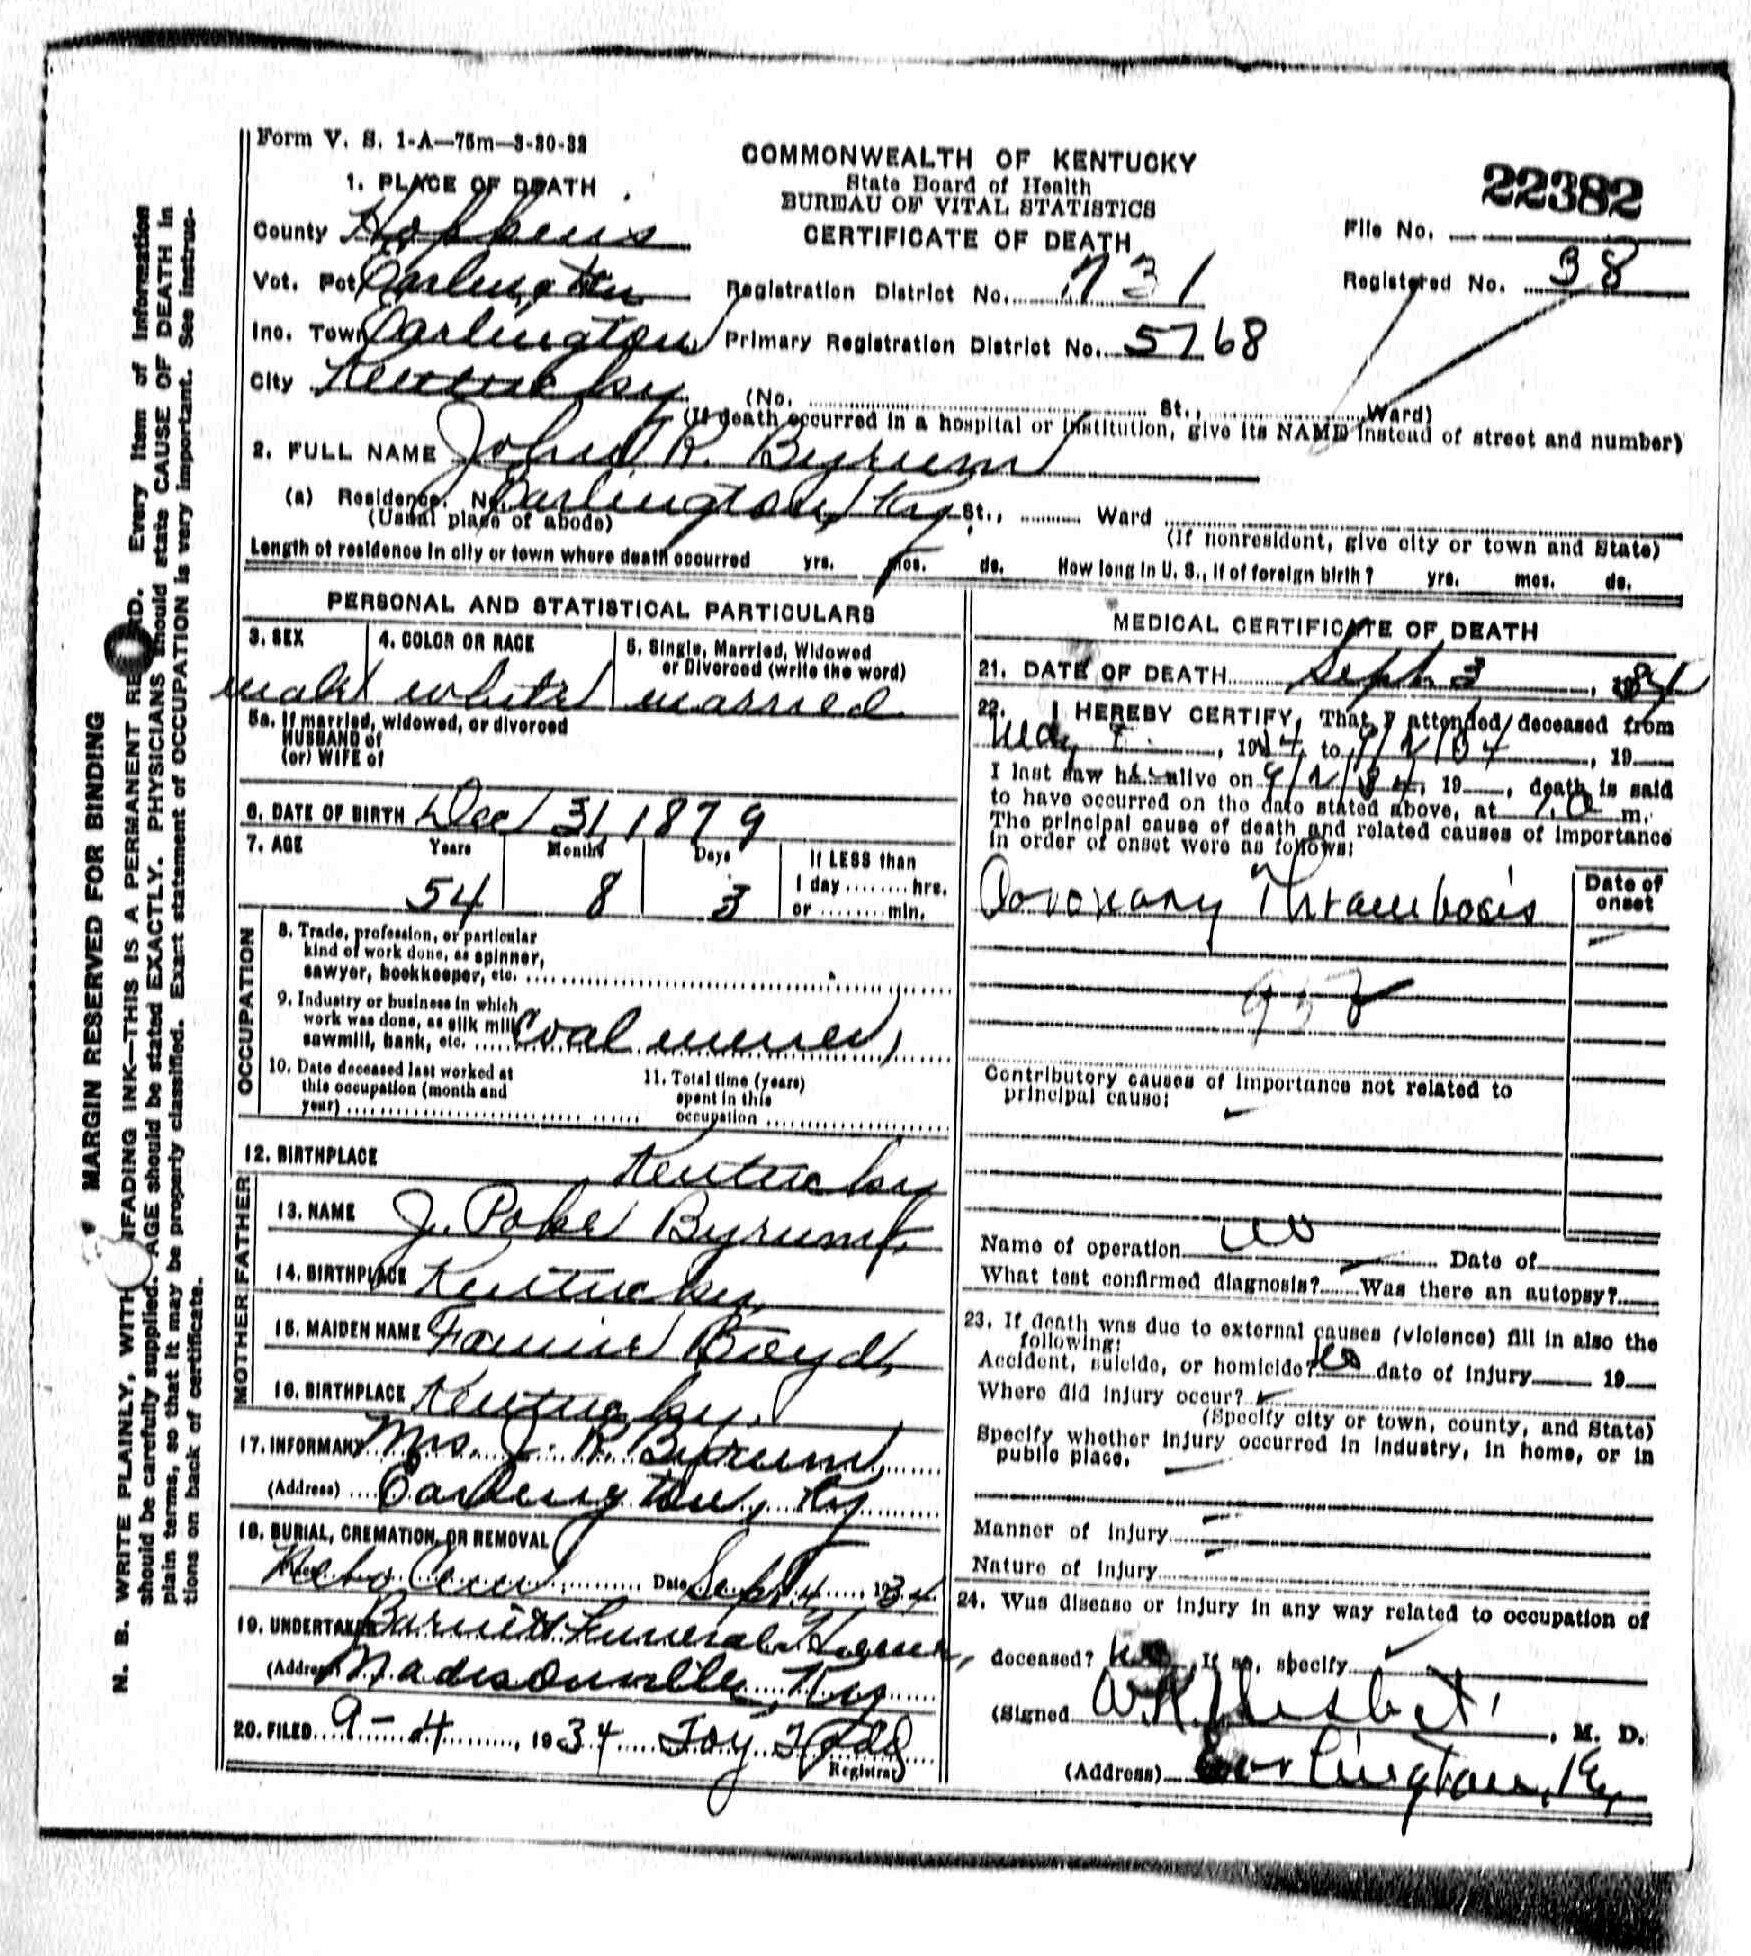 Form V. S. 1-A—75m—3-30-32
COMMONWEALTH OF KENTUCKY
State Board of Health
BUREAU OF VITAL STATISTICS
CERTIFICATE OF DEATH
22382
File No.
Registered No. 38
1. PLACE OF DEATH
County Hopkins
Vot. Pct Earlington
Registration District No. 731
Inc. Town Earlington
Primary Registration District No. 5768
City Kentucky
(No. St., Ward)
(If death occurred in a hospital or institution, give its NAME instead of street and number)
2. FULL NAME John R. Byrum
(a) Residence. No. Earlington, Ky St., Ward
(Usual place of abode)
(If nonresident, give city or town and State)
Length of residence in city or town where death occurred yrs. mos. ds. How long in U. S., if of foreign birth? yrs. mos. ds.
PERSONAL AND STATISTICAL PARTICULARS
3. SEX
4. COLOR OR RACE
5. Single, Married, Widowed
or Divorced (write the word)
male white married
5a. If married, widowed, or divorced
HUSBAND of
(or) WIFE of
6. DATE OF BIRTH Dec 31, 1879
7. AGE Years Months Days
54 8 3
If LESS than
1 day ........ hrs.
or ........ min.
OCCUPATION
8. Trade, profession, or particular
kind of work done, as spinner,
sawyer, bookkeeper, etc.
9. Industry or business in which
work was done, as silk mill,
sawmill, bank, etc. Coal miner
10. Date deceased last worked at
this occupation (month and
year)
11. Total time (years)
spent in this
occupation
12. BIRTHPLACE Kentucky
FATHER
13. NAME J. Poke Byrum
14. BIRTHPLACE Kentucky
MOTHER
15. MAIDEN NAME Fannie Boyd
16. BIRTHPLACE Kentucky
17. INFORMANT Mrs. J. R. Byrum
(Address) Earlington, Ky
18. BURIAL, CREMATION, OR REMOVAL
Nebo Cem. Date Sept 4 1934
19. UNDERTAKER Barnett Funeral Home,
(Address) Madisonville, Ky
20. FILED 9-4, 1934 Toy Todd
Registrar
MEDICAL CERTIFICATE OF DEATH
21. DATE OF DEATH Sept 3, 1934
22. I HEREBY CERTIFY, That I attended deceased from
, 19 34 to 9/2/34, 19
I last saw h alive on 9/2/34, 19 , death is said
to have occurred on the date stated above, at m.
The principal cause of death and related causes of importance
in order of onset were as follows:
Date of
onset
Coronary Thrombosis
Contributory causes of importance not related to
principal cause:
Name of operation no Date of
What test confirmed diagnosis? Was there an autopsy?
23. If death was due to external causes (violence) fill in also the
following:
Accident, suicide, or homicide? no date of injury 19
Where did injury occur?
(Specify city or town, county, and State)
Specify whether injury occurred in industry, in home, or in
public place.
Manner of injury
Nature of injury
24. Was disease or injury in any way related to occupation of
deceased? no If so, specify
(Signed W.K. Nisbet, M. D.
(Address) Earlington, Ky
MARGIN RESERVED FOR BINDING
N. B. WRITE PLAINLY, WITH UNFADING INK—THIS IS A PERMANENT RECORD. Every item of information
should be carefully supplied. AGE should be stated EXACTLY. PHYSICIANS should state CAUSE OF DEATH in
plain terms, so that it may be properly classified. Exact statement of OCCUPATION is very important. See instruc-
tions on back of certificate.